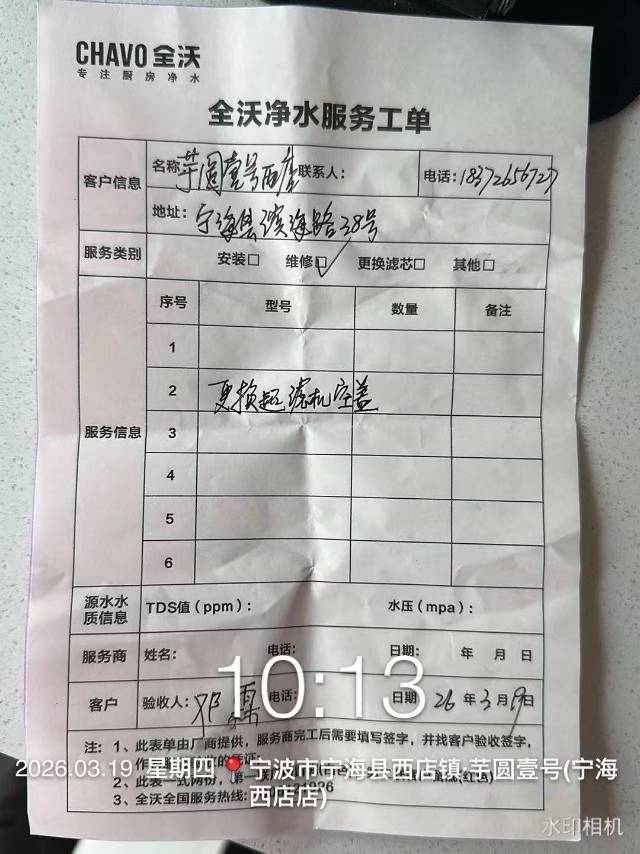 CHAVO 全沃
专注厨房净水
全沃净水服务工单
客户信息 名称 芋圆壹号西店 联系人： 电话：18372656727
地址：宁海县滨海路38号
服务类别 安装□ 维修☑ 更换滤芯□ 其他□
服务信息 序号 型号 数量 备注
1
2 更换超滤机空盖
3
4
5
6
源水水质信息 TDS值（ppm）： 水压（mpa）：
服务商 姓名： 电话： 日期： 年 月 日
客户 验收人： 电话： 日期 26年3月19日
10:13
注：1、此表单由厂商提供，服务商完工后需要填写签字，并找客户验收签字，
2、此表一式两份，第一
3、全沃全国服务热线：
2026.03.19 星期四 宁波市宁海县西店镇·芋圆壹号(宁海
西店店)
水印相机